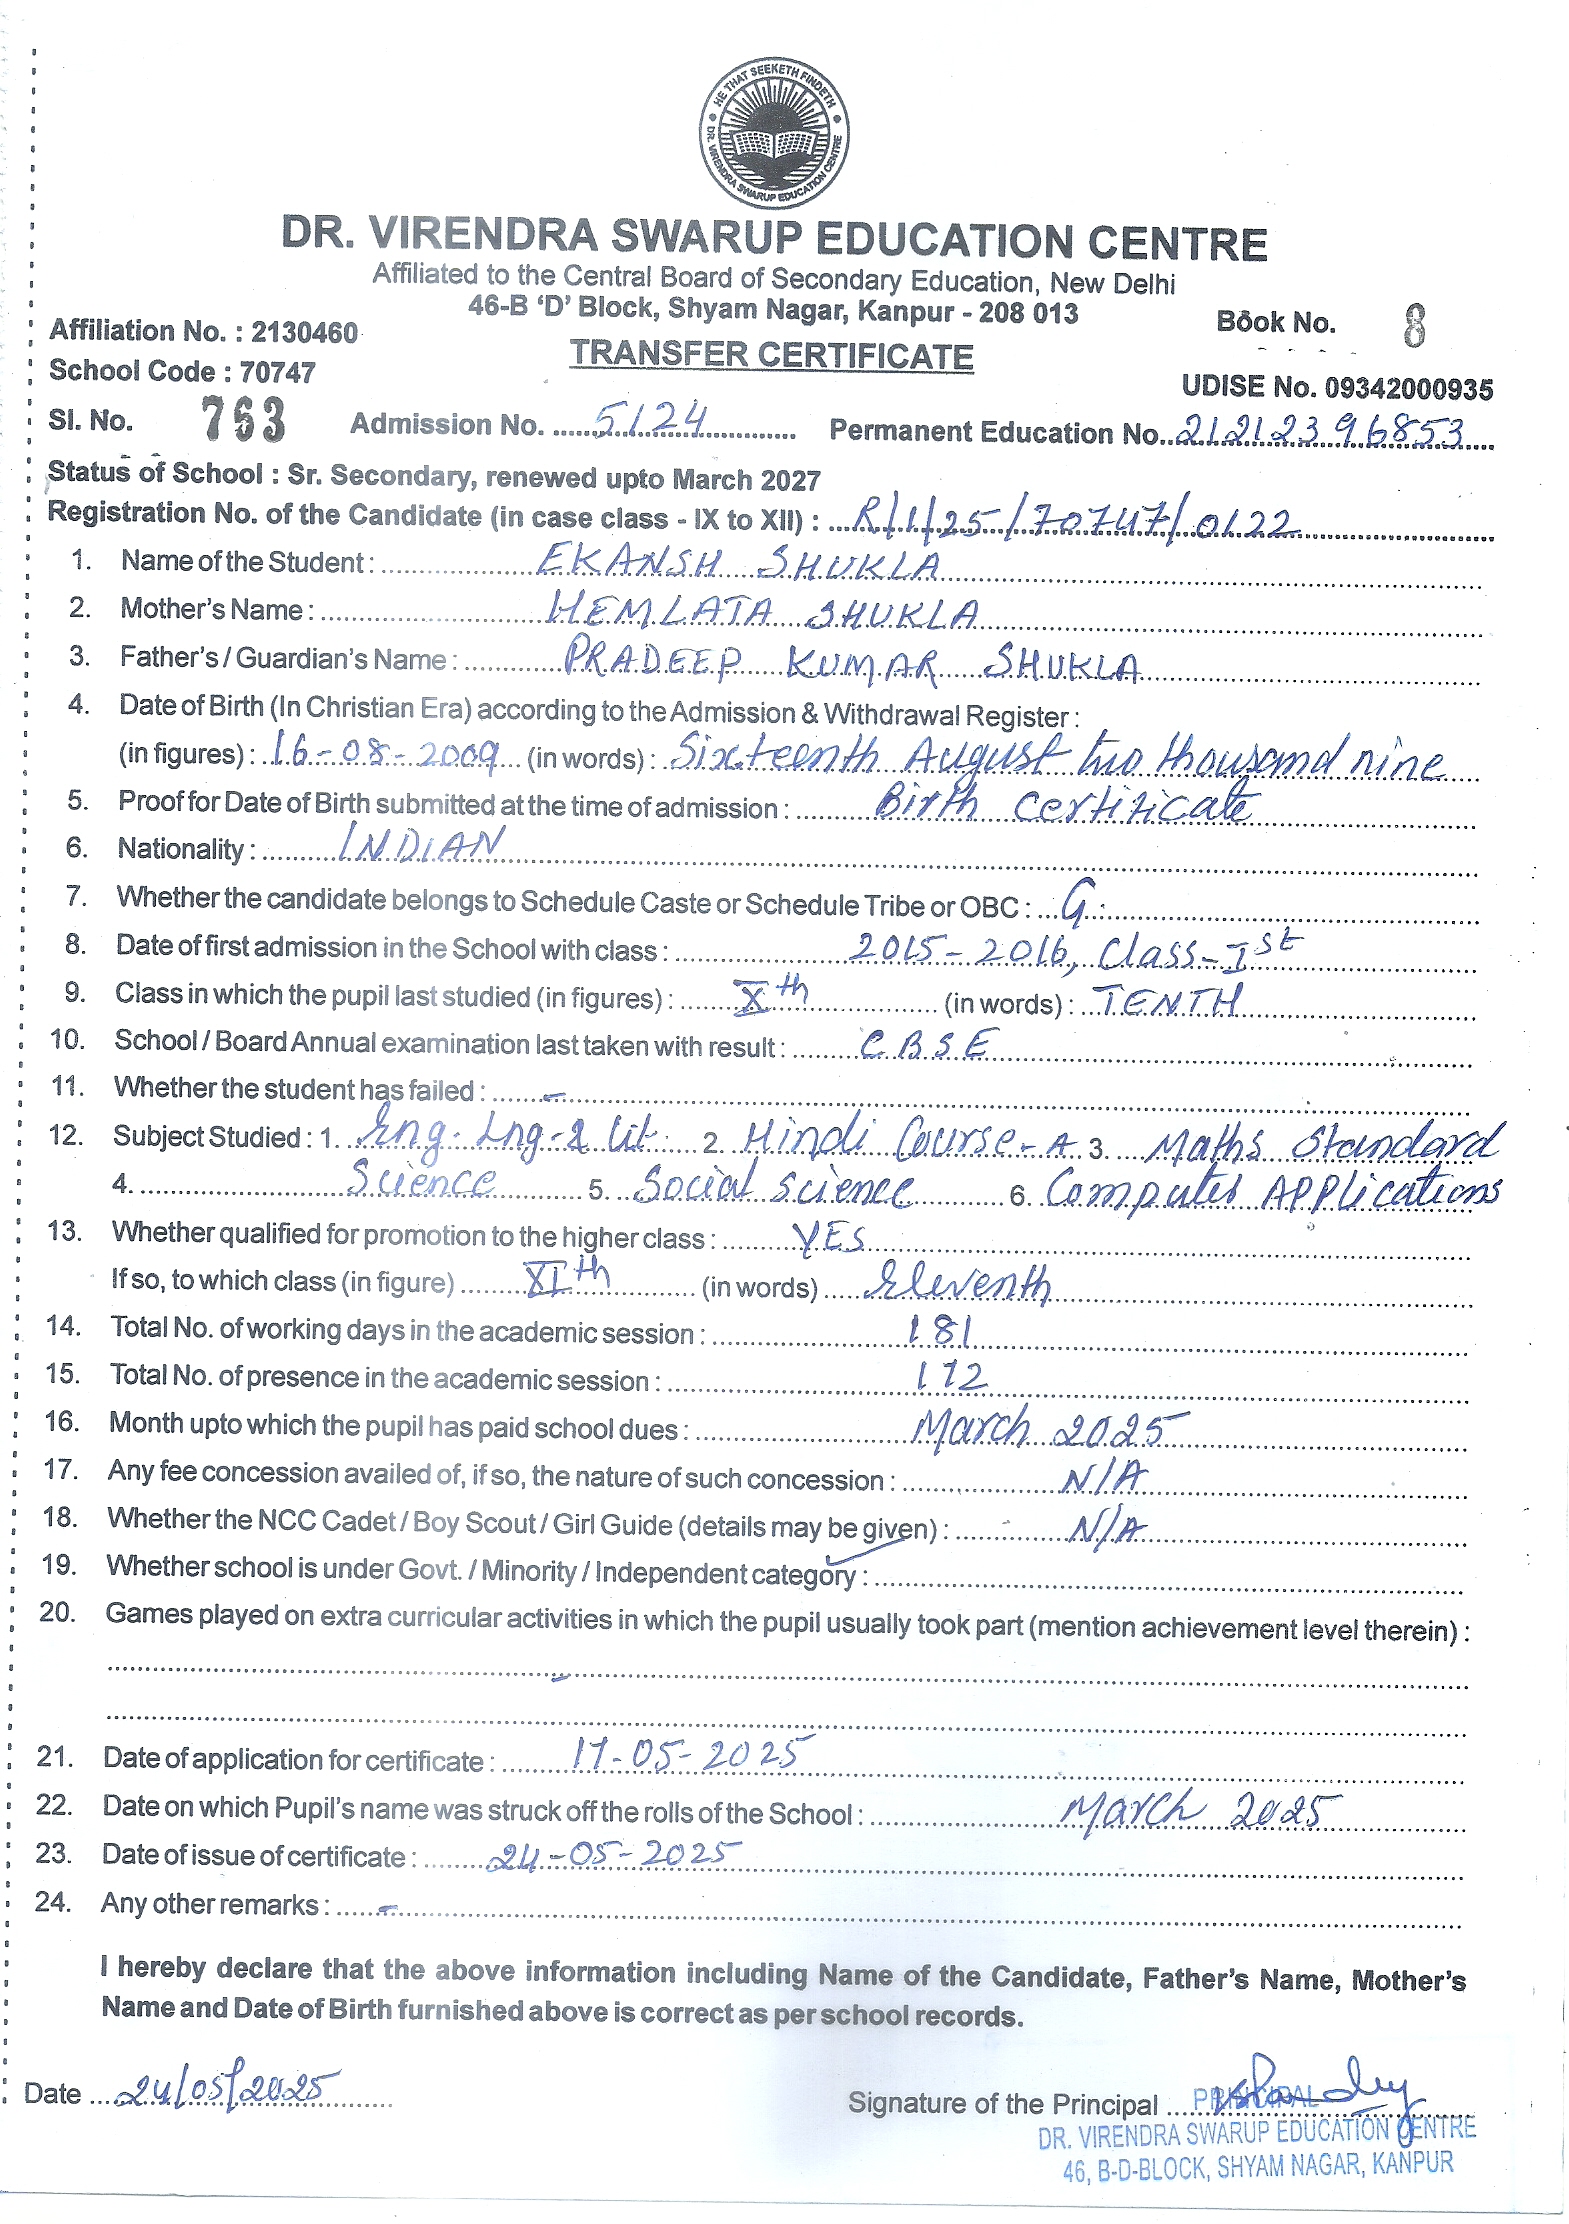 HE THAT SEEKETH FINDETH
DR. VIRENDRA SWARUP EDUCATION CENTRE
DR. VIRENDRA SWARUP EDUCATION CENTRE
Affiliated to the Central Board of Secondary Education, New Delhi
46-B ‘D’ Block, Shyam Nagar, Kanpur - 208 013
Affiliation No. : 2130460
Book No. 8
TRANSFER CERTIFICATE
School Code : 70747
UDISE No. 09342000935
Sl. No. 763 Admission No. 5124 Permanent Education No. 21212396853
Status of School : Sr. Secondary, renewed upto March 2027
Registration No. of the Candidate (in case class - IX to XII) : R/1/25/70747/0122
1. Name of the Student : EKANSH SHUKLA
2. Mother's Name : HEMLATA SHUKLA
3. Father's / Guardian's Name : PRADEEP KUMAR SHUKLA
4. Date of Birth (In Christian Era) according to the Admission & Withdrawal Register :
(in figures) : 16-08-2009 (in words) : Sixteenth August two thousand nine
5. Proof for Date of Birth submitted at the time of admission : Birth certificate
6. Nationality : INDIAN
7. Whether the candidate belongs to Schedule Caste or Schedule Tribe or OBC : G
8. Date of first admission in the School with class : 2015-2016, Class-Ist
9. Class in which the pupil last studied (in figures) : Xth (in words) : TENTH
10. School / Board Annual examination last taken with result : CBSE
11. Whether the student has failed : -
12. Subject Studied : 1. Eng. Lng-& Lit. 2. Hindi Course-A 3. Maths Standard
4. Science 5. Social science 6. Computer APPlications
13. Whether qualified for promotion to the higher class : YES
If so, to which class (in figure) XIth (in words) Eleventh
14. Total No. of working days in the academic session : 181
15. Total No. of presence in the academic session : 172
16. Month upto which the pupil has paid school dues : March 2025
17. Any fee concession availed of, if so, the nature of such concession : N/A
18. Whether the NCC Cadet / Boy Scout / Girl Guide (details may be given) : N/A
19. Whether school is under Govt. / Minority / Independent category :
20. Games played on extra curricular activities in which the pupil usually took part (mention achievement level therein) :
-
21. Date of application for certificate : 17-05-2025
22. Date on which Pupil's name was struck off the rolls of the School : March 2025
23. Date of issue of certificate : 24-05-2025
24. Any other remarks : -
I hereby declare that the above information including Name of the Candidate, Father's Name, Mother's
Name and Date of Birth furnished above is correct as per school records.
Date 24/05/2025
Signature of the Principal PRINCIPAL
DR. VIRENDRA SWARUP EDUCATION CENTRE
46, B-D-BLOCK, SHYAM NAGAR, KANPUR